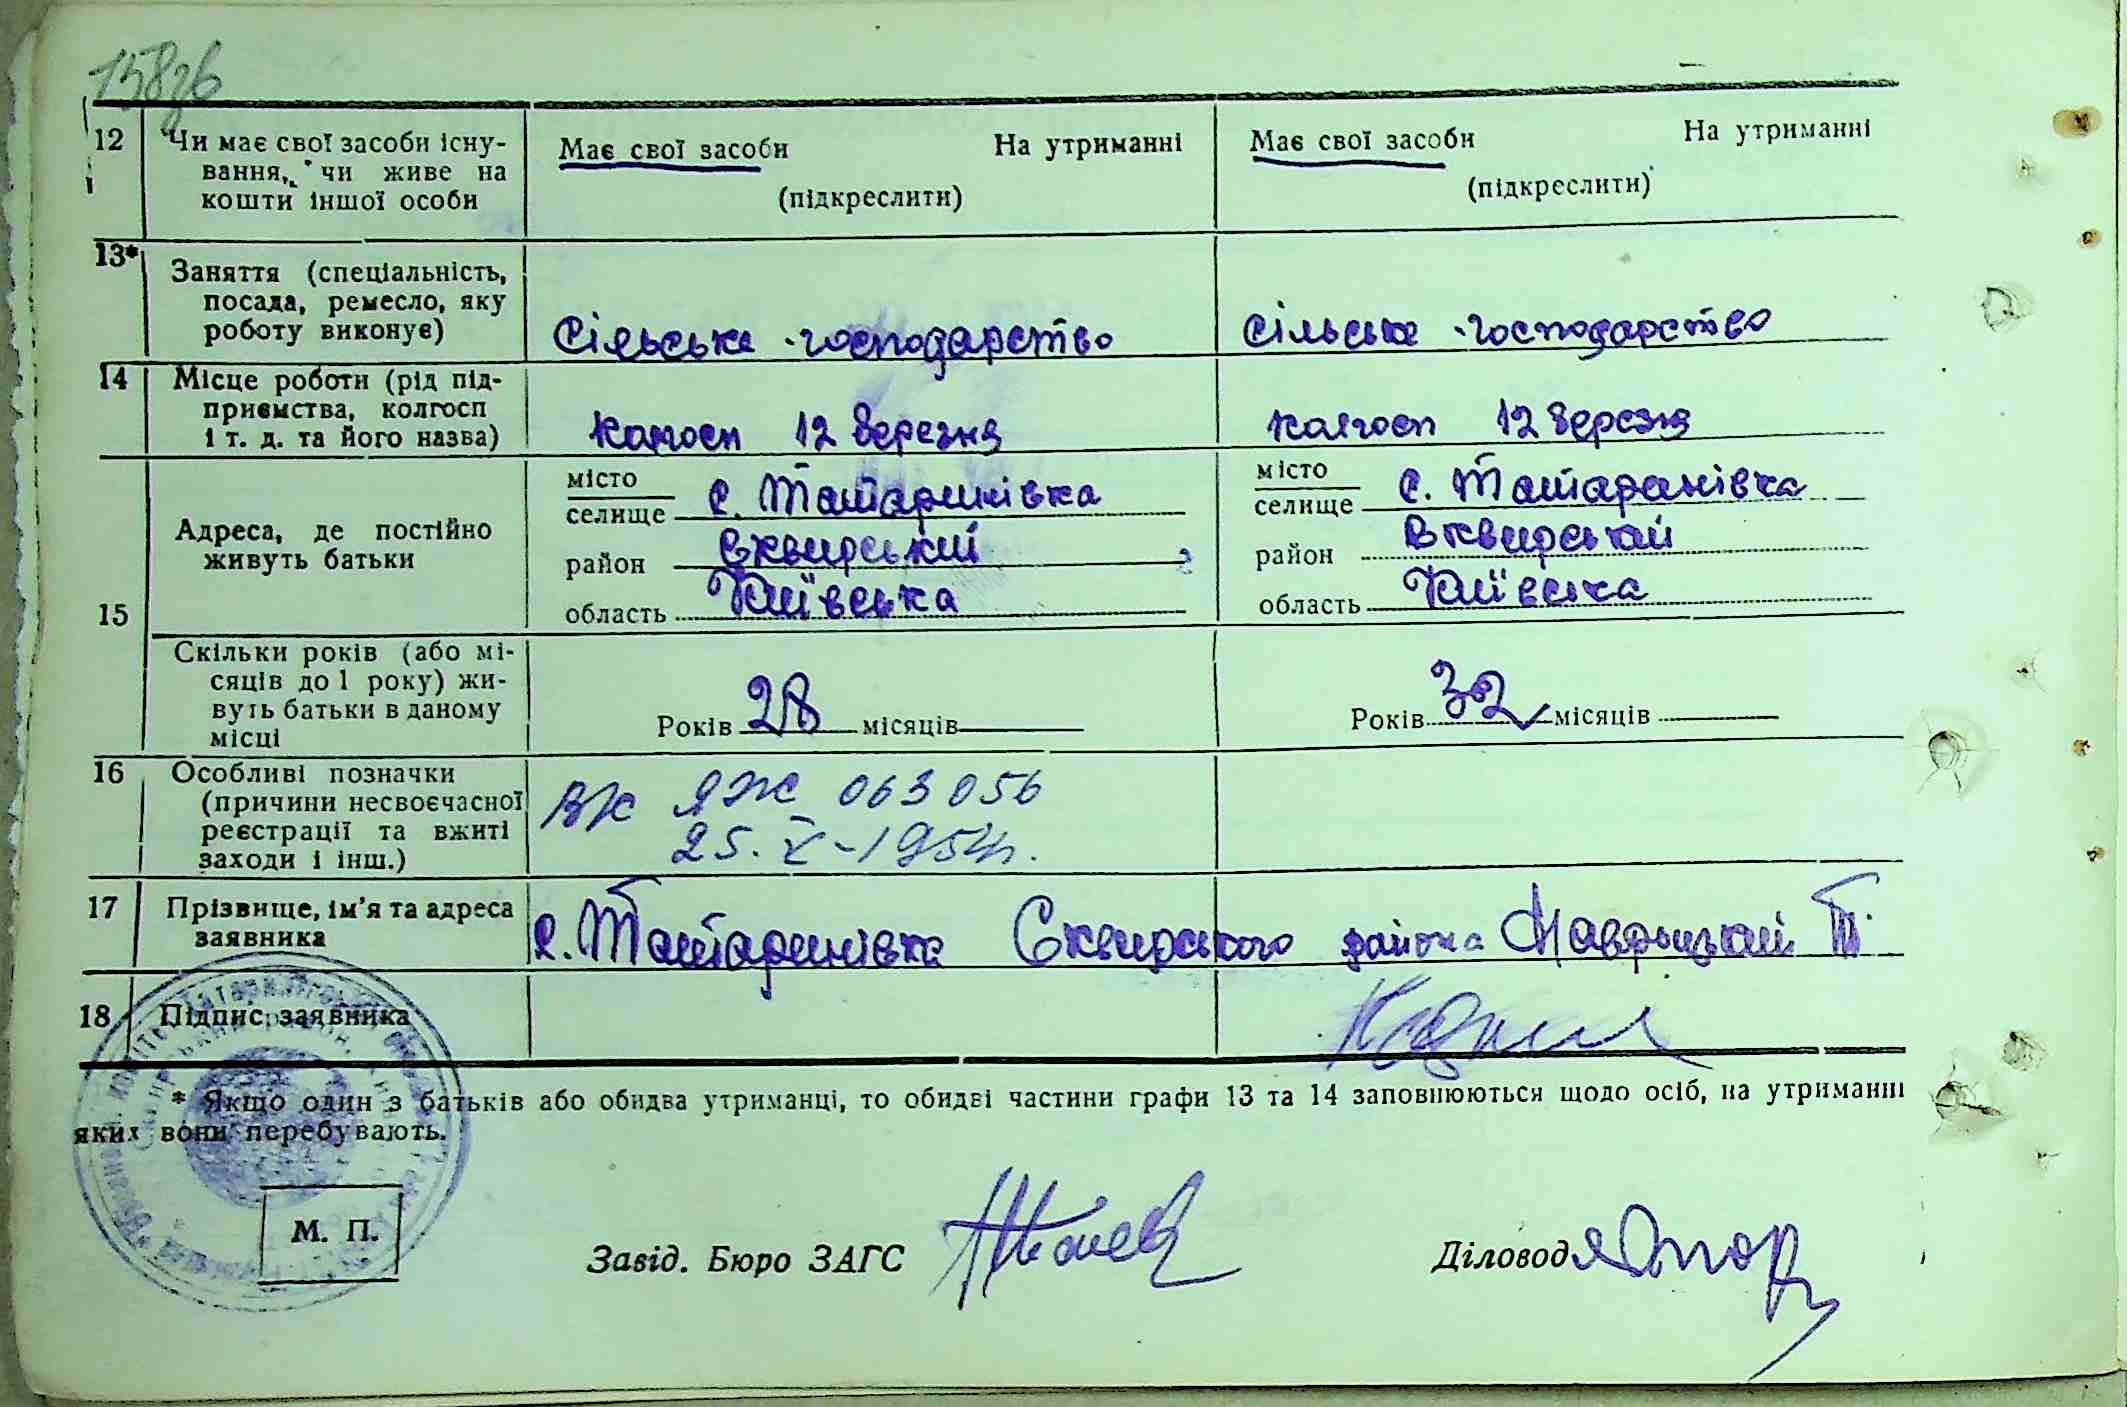 158зв
12 Чи має свої засоби існу-
вання, чи живе на
кошти іншої особи
Має свої засоби На утриманні
(підкреслити)
Має свої засоби На утриманні
(підкреслити)
13* Заняття (спеціальність,
посада, ремесло, яку
роботу виконує)
Сільське господарство
Сільське господарство
14 Місце роботи (рід під-
приємства, колгосп
і т. д. та його назва)
Колгосп 12 березня
Колгосп 12 березня
15 Адреса, де постійно
живуть батьки
місто
селище с. Татаринівка
район Сквирський
область Київська
місто
селище с. Татаринівка
район Сквирський
область Київська
Скільки років (або мі-
сяців до 1 року) жи-
вуть батьки в даному
місці
Років 28 місяців
Років 32 місяців
16 Особливі позначки
(причини несвоєчасної
реєстрації та вжиті
заходи і інш.)
ЯЖ 063056
25. V-1954р.
17 Прізвище, ім'я та адреса
заявника
с. Татаринівка Сквирського района Маврицкий Т.
18 Підпис заявника
* Якщо один з батьків або обидва утриманці, то обидві частини графи 13 та 14 заповнюються щодо осіб, на утриманні
яких вони перебувають.
М. П.
Завід. Бюро ЗАГС
Діловод